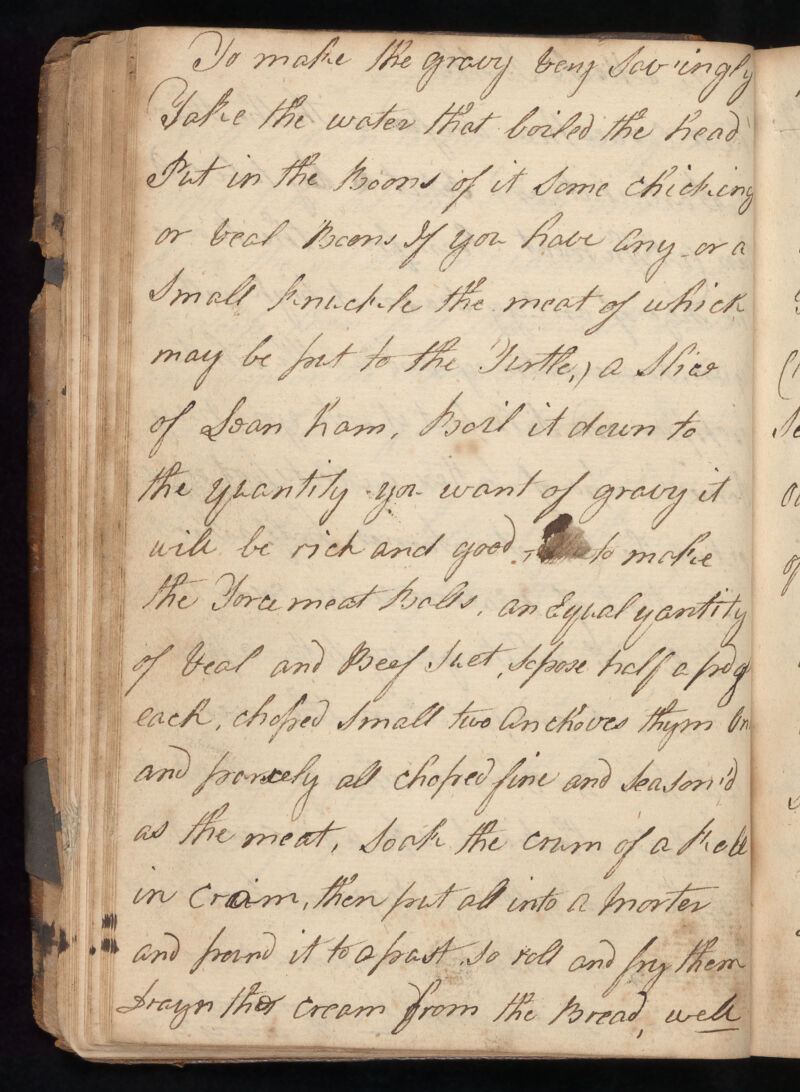 To make the gravy Very Sav'ingly
Take the water that boiled the head
Put in the Boons of it Some chicking
or Veal Boons If you have any or a
Small knuckle the meat of which
may be put to the Turtle,) a Slice
of Lean ham, Boil it down to
the quantity you want of gravy it
will be rich and good, to make
the Forcemeat Balls, an Equal qantity
of Veal and Beef Suet, Sepose half a pd
each, choped Small two Anchoves thym
and parscely all choped fine and Season'd
as the meat, Soak the crum of a
in Craim, then put all into a Morter
and pound it to a past, So roll and fry them
Drayn the cream from the Bread, well
Se
of